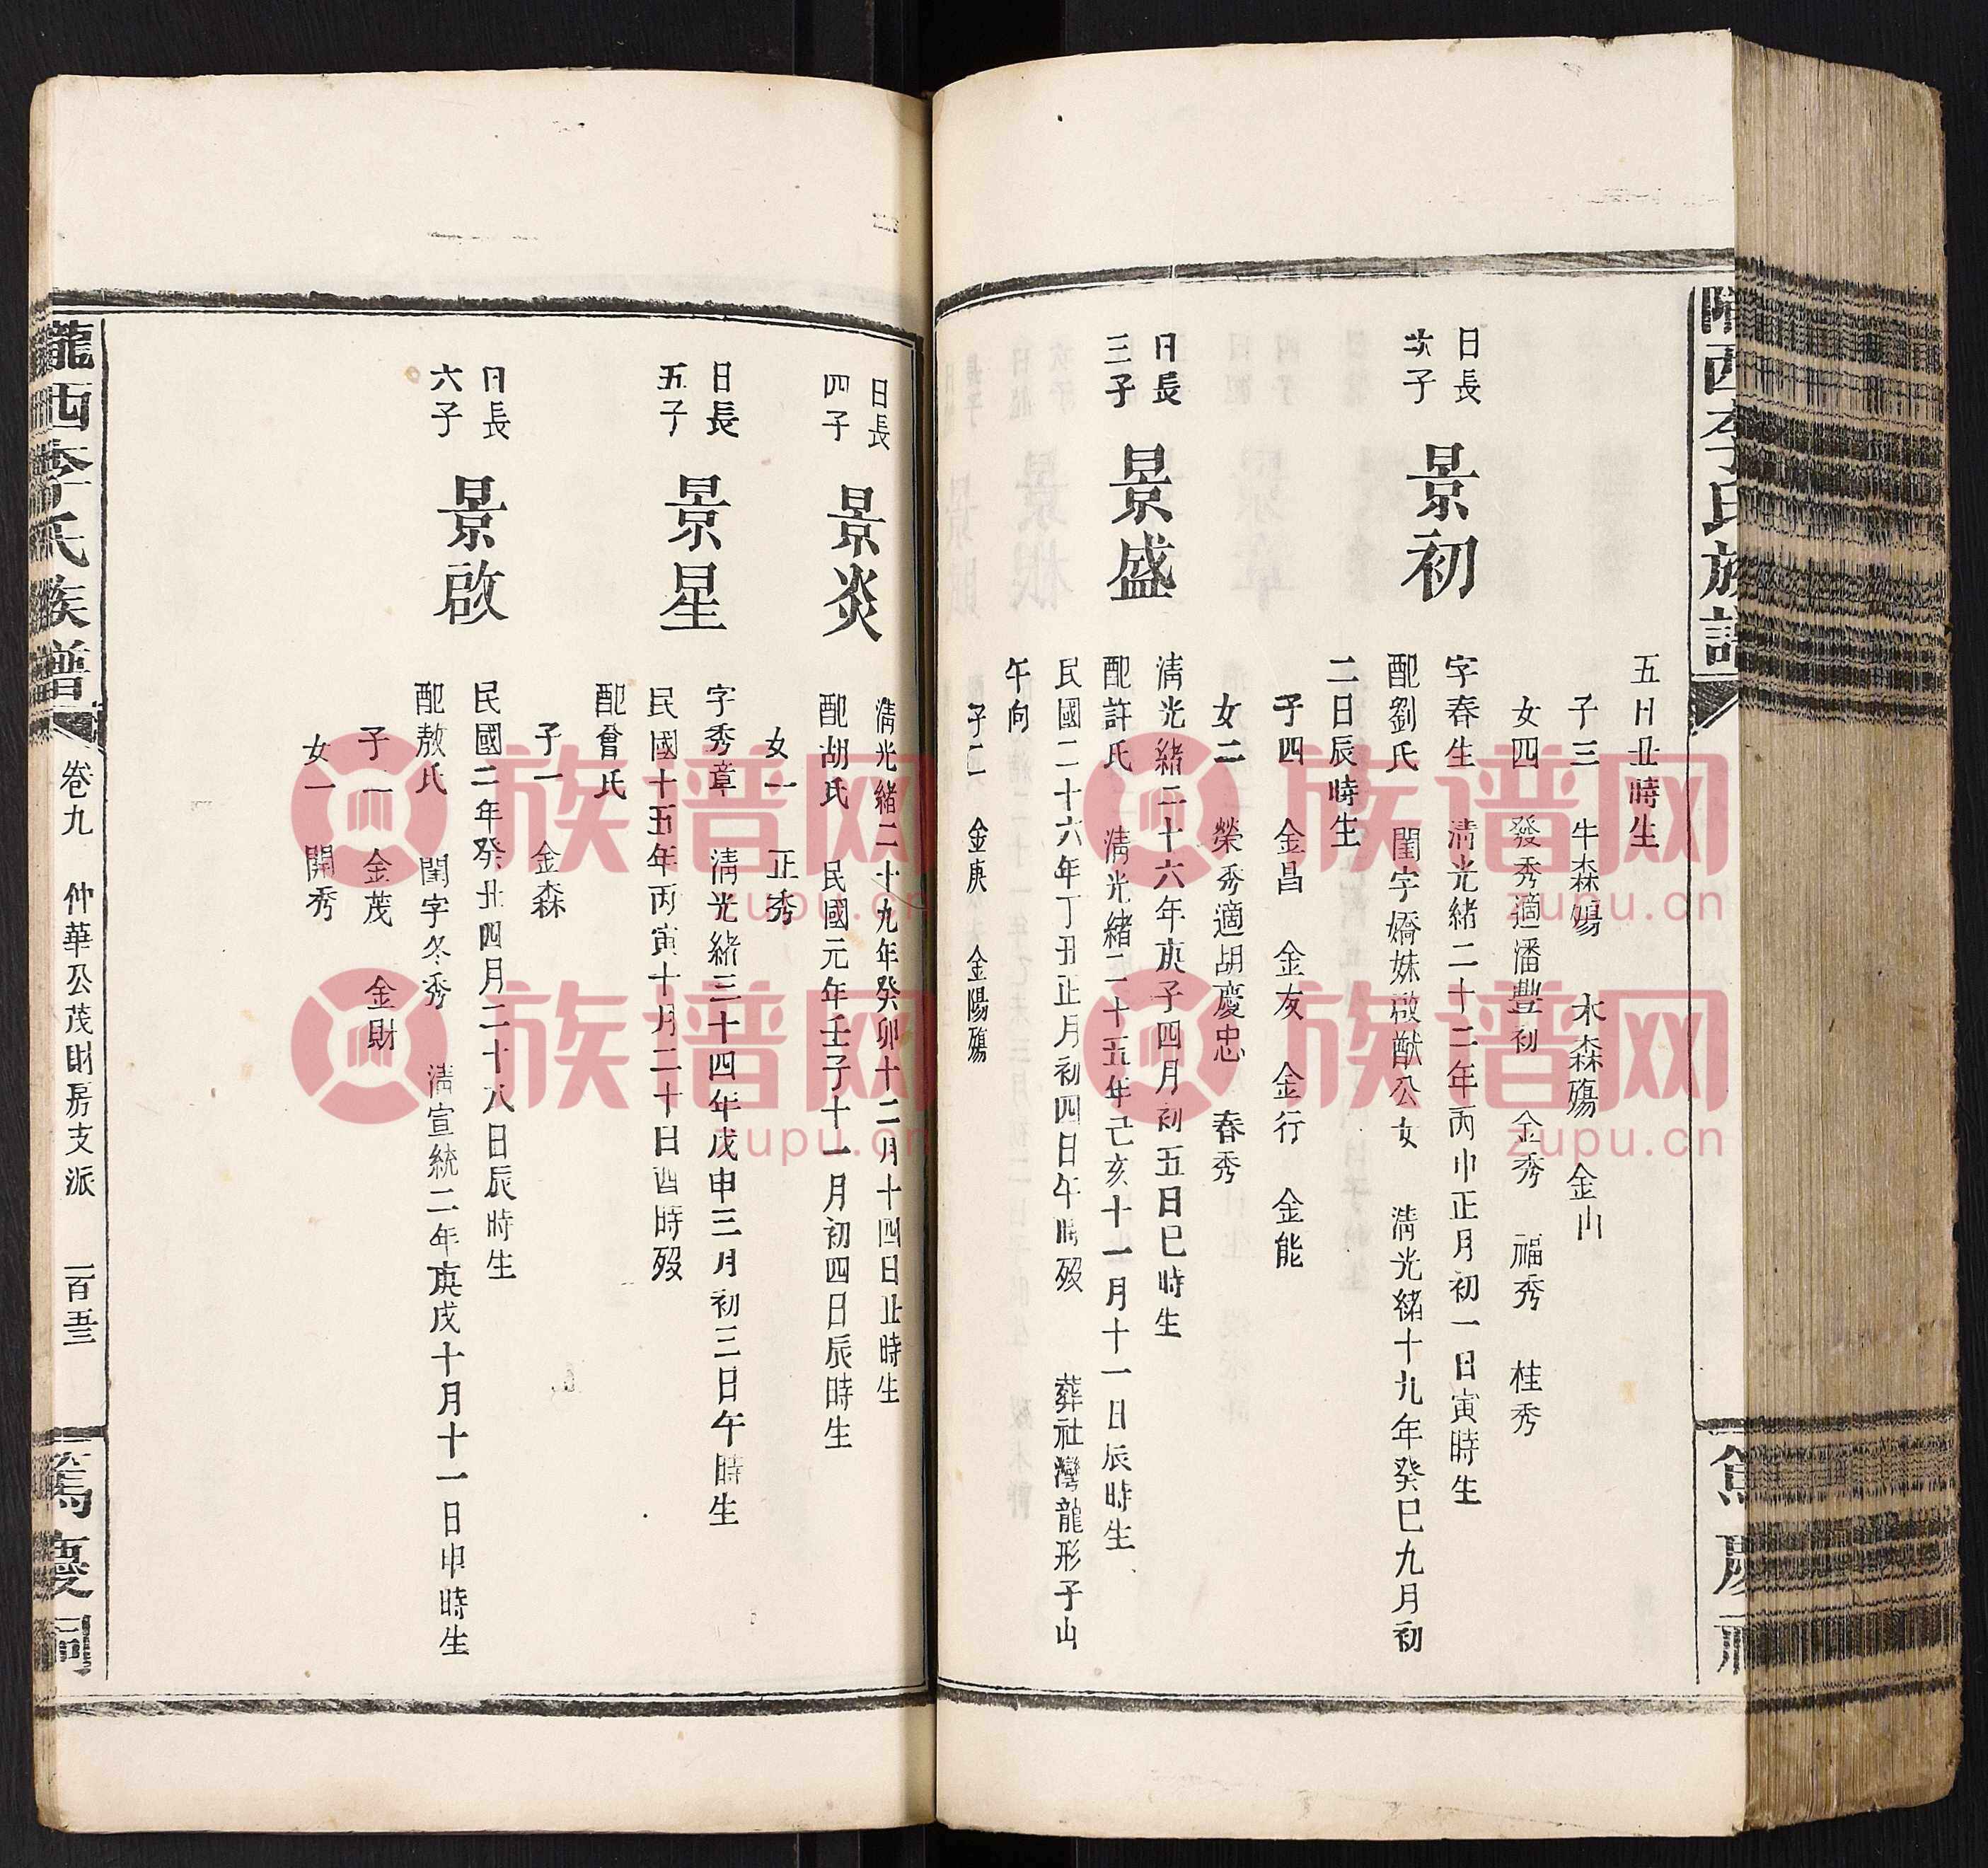 隴西李氏族譜
五日丑時生
子三 牛森殤 木森殤 金山
女四 發秀適潘豐初 金秀 福秀 桂秀
日長
次子
景初
字春生 清光緒二十二年丙申正月初一日寅時生
配劉氏 閨字嬌妹啟猷公女 清光緒十九年癸巳九月初
二日辰時生
子四 金昌 金友 金行 金能
女二 榮秀適胡慶忠 春秀
日長
三子
景盛
清光緒二十六年庚子四月初五日巳時生
配許氏 清光緒二十五年己亥十一月十一日辰時生
民國二十六年丁丑正月初四日午時歿 葬社灣龍形子山
午向
子二 金庚 金陽殤
日長
四子
景炎
清光緒二十九年癸卯十二月十四日丑時生
配胡氏 民國元年壬子十一月初四日辰時生
女一 正秀
日長
五子
景星
字秀章 清光緒三十四年戊申三月初三日午時生
民國十五年丙寅十月二十日酉時歿
配會氏
子一 金森
日長
六子
景啟
民國二年癸丑四月二十八日辰時生
配敖氏 閨字冬秀 清宣統二年庚戌十月十一日申時生
子二 金茂 金財
女一 開秀
隴西李氏族譜 卷九 仲華公茂財房支派 一百五三 篤慶祠
族谱网
zupu.cn
族谱网
zupu.cn
族谱网
zupu.cn
族谱网
zupu.cn